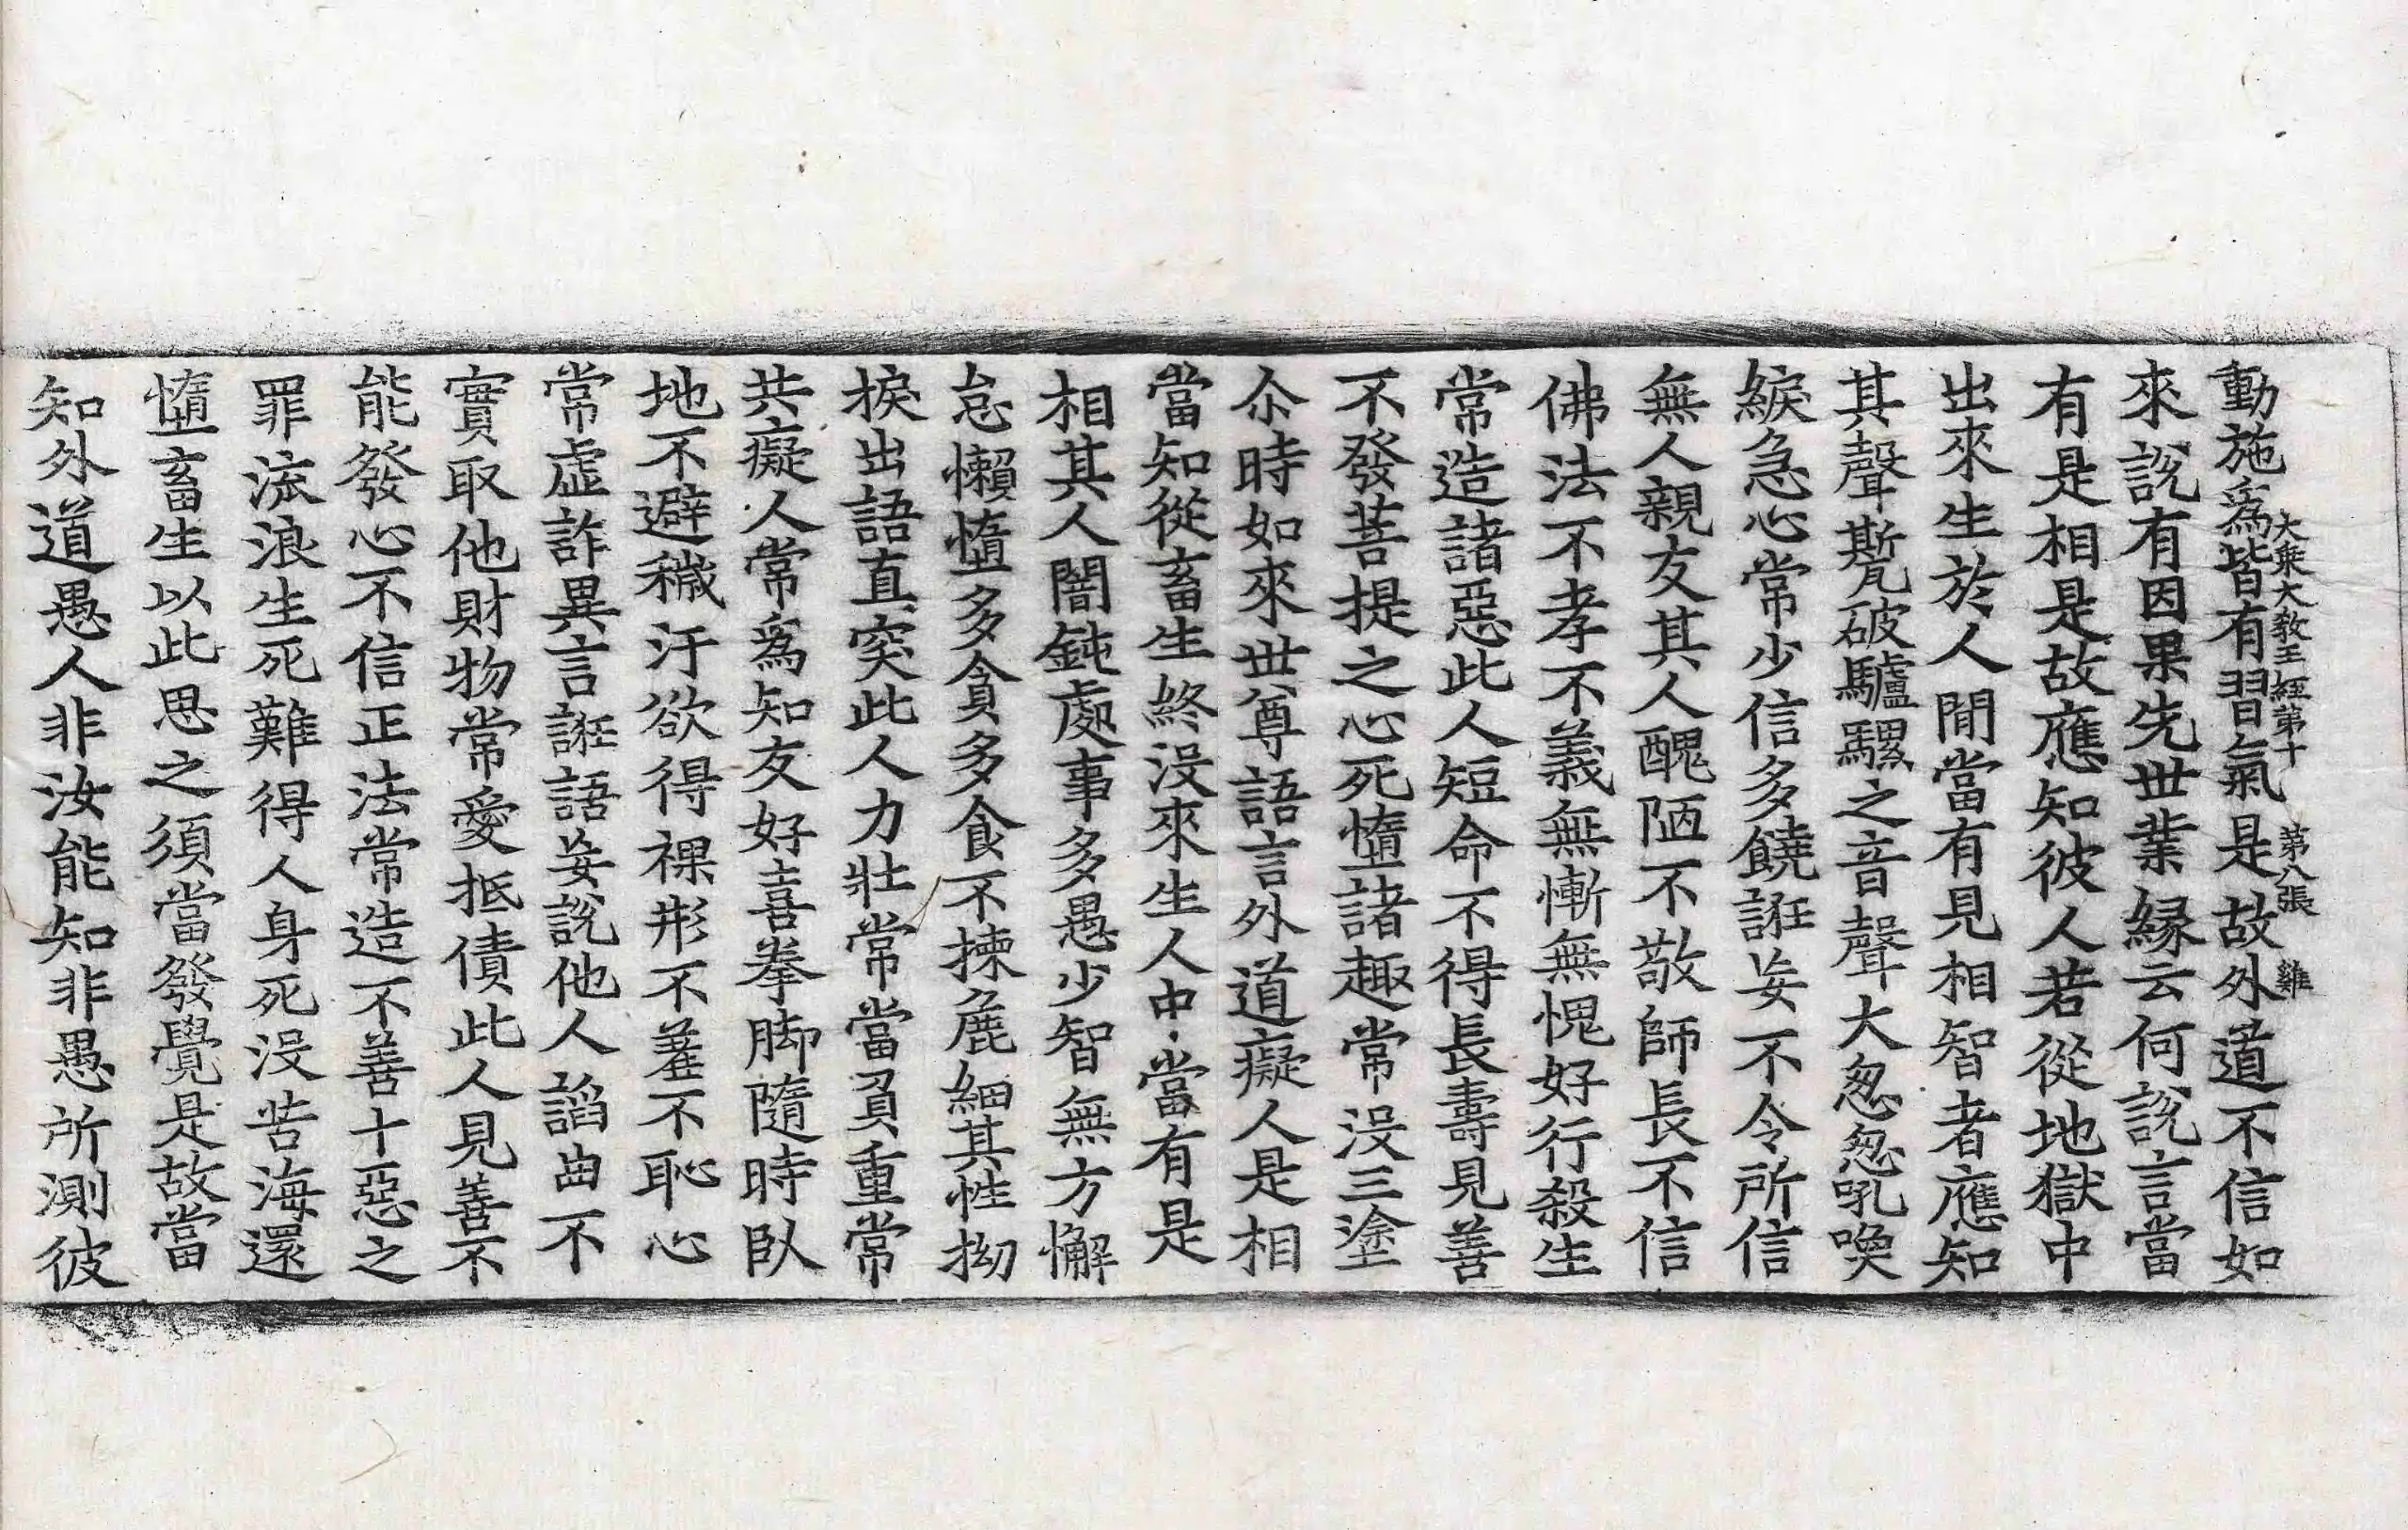 動施爲皆有習氣是故外道不信如
大乘大教王經第十 第八張 雞
來說有因果先世業緣云何說言當
有是相是故應知彼人若從地獄中
出來生於人閒當有見相智者應知
其聲㽄破驢騾之音聲大忽忽吼喚
綟急心常少信多饒誑妄不令所信
無人親友其人醜陋不敬師長不信
佛法不孝不義無慚無愧好行殺生
常造諸惡此人短命不得長壽見善
不發菩提之心死墮諸趣常沒三塗
尒時如來世尊語言外道癡人是相
當知從畜生終沒來生人中當有是
相其人闇鈍處事多愚少智無方懈
怠懶墮多貪多食不揀麁細其性拗
捩出語直突此人力壯常當負重常
共癡人常爲知友好喜拳脚隨時臥
地不避穢汙欲得裸形不羞不恥心
常虛詐異言誑語妄說他人諂曲不
實取他財物常愛抵債此人見善不
能發心不信正法常造不善十惡之
罪流浪生死難得人身死沒苦海還
墮畜生以此思之須當發覺是故當
知外道愚人非汝能知非愚所測彼